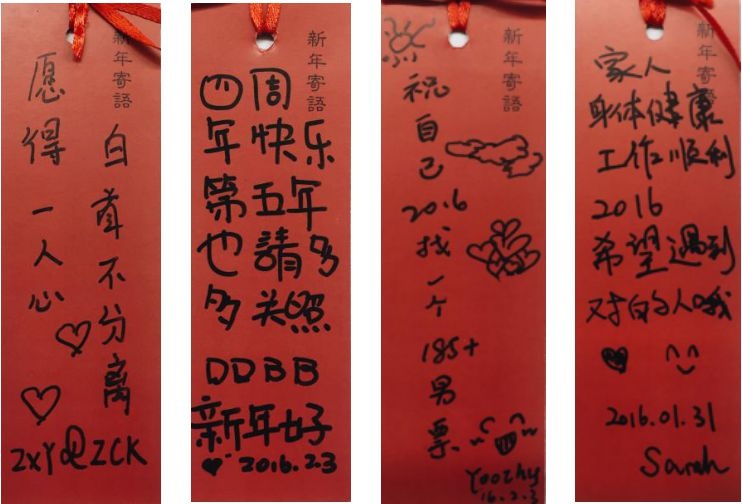 新年寄語
愿得一人心
白首不分离
ZXY@ZCK
新年寄語
四周
年快乐
第五年
也請多
多关照
DDBB
新年好
2016.2.3
新年寄語
祝自己2016找一个185+男票
Yoozhy
16.2.3
新年寄語
家人
身体健康
工作顺利
2016
希望遇到
对的人哦
2016.01.31
Sarah